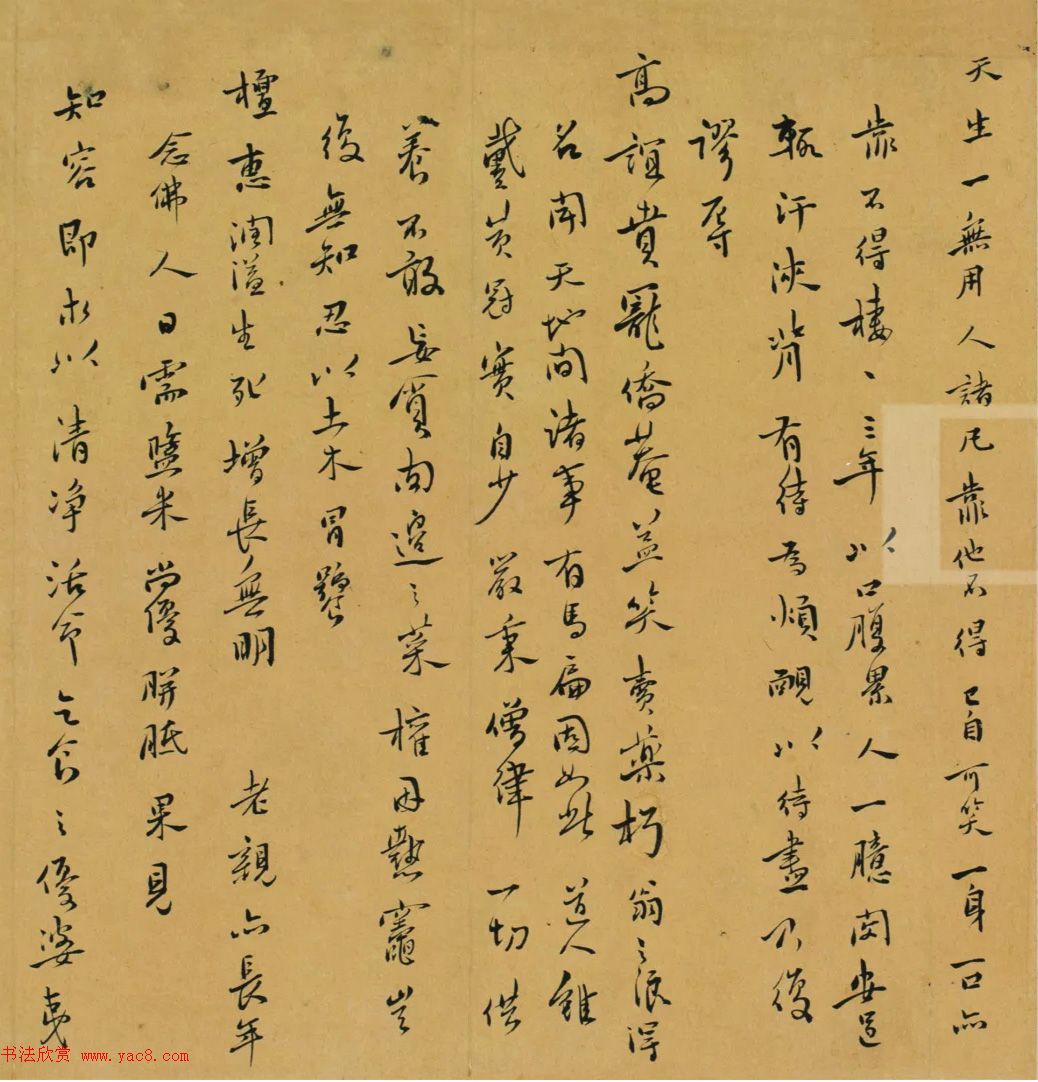 天生一無用人諸凡靠他不得已自可笑一身一口亦
靠不得棲〻三年以口腹累人一臆閔安道
輒汗浹背有待為煩靦以待盡不復
謬辱
高誼賁寵僑菴益笑賣藥朽翁之浪得
名聞天地間諸事有馬扁固如此道人雖
戴黃冠實自少嚴秉僧律一切供
養不敢妄貪向邊之菜權因熱竈豈
復無知忍以土木冒饕
檀惠潤溢生死增長無明 老親亦長年
念佛人日需鹽米尚優胼胝果見
知容即求以清淨活命乞食之優婆夷
书法欣赏 www.yac8.com